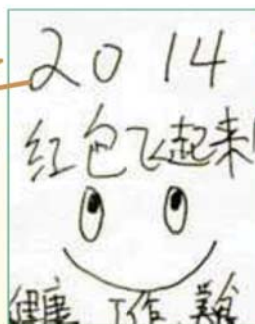 2014
红包飞起来!
健康 工作 美食